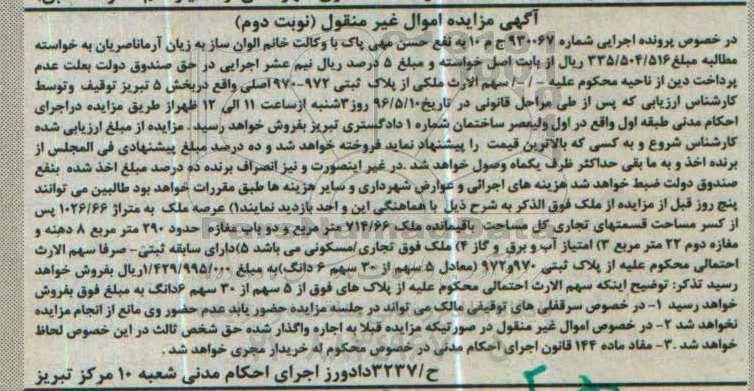 آگهی مزایده اموال غیر منقول (نوبت دوم)
در خصوص پرونده اجرایی شماره ۹۳۰۰۶۷ ج م ۱۰ به نفع حسن مهی پاک با وکالت خانم الوان ساز به زیان آرماناصریان به خواسته
مطالبه مبلغ ۳۳۵/۵۰۴/۵۱۶ ریال از بابت اصل خواسته و مبلغ ۵ درصد ریال نیم عشر اجرایی در حق صندوق دولت بعلت عدم
پرداخت دین از ناحیه محکوم علیه -/-/ سهم الارث ملکی از پلاک ثبتی ۹۷۲-۹۷۰ اصلی واقع دربخش ۵ تبریز توقیف وتوسط
کارشناس ارزیابی که پس از طی مراحل قانونی در تاریخ ۹۶/۵/۱۰ روز ۳شنبه ازساعت ۱۱ الی ۱۲ ظهراز طریق مزایده دراجرای
احکام مدنی طبقه اول واقع در اول ولیعصر ساختمان شماره ۱ دادگستری تبریز بفروش خواهد رسید. مزایده از مبلغ ارزیابی شده
کارشناس شروع و به کسی که بالاترین قیمت را پیشنهاد نماید فروخته خواهد شد و ده درصد مبلغ پیشنهادی فی المجلس از
برنده اخذ و به ما بقی حداکثر ظرف یکماه وصول خواهد شد .در غیر اینصورت و نیز انصراف برنده ده درصد مبلغ اخذ شده بنفع
صندوق دولت ضبط خواهد شد هزینه های اجرائی و عوارض شهرداری و سایر هزینه ها طبق مقررات خواهد بود طالبین می توانند
پنج روز قبل از مزایده از ملک فوق الذکر به شرح ذیل با هماهنگی این واحد بازدید نمایند۱) عرصه ملک به متراژ ۱۰۲۶/۶۶ پس
از کسر مساحت قسمتهای تجاری کل مساحت باقیمانده ملک ۷۱۴/۶۶ متر مربع و دو باب مغازه حدود ۲۹۰ متر مربع ۸ دهنه و
مغازه دوم ۲۲ متر مربع ۳) امتیاز آب و برق و گاز ۴) ملک فوق تجاری/مسکونی می باشد ۵)دارای سابقه ثبتی- صرفا سهم الارث
احتمالی محکوم علیه از پلاک ثبتی ۹۷۰و۹۷۲ (معادل ۵ سهم از ۳۰ سهم ۶ دانگ)به مبلغ ۱/۴۲۹/۹۹۵/۰۰۰ریال بفروش خواهد
رسید تذکر: توضیح اینکه سهم الارث احتمالی محکوم علیه از پلاک های فوق از ۵ سهم از ۳۰ سهم ۶دانگ به مبلغ فوق بفروش
خواهد رسید ۱- در خصوص سرقفلی های توقیفی مالک می تواند در جلسه مزایده حضور یابد عدم حضور وی مانع از انجام مزایده
نخواهد شد ۲- در خصوص اموال غیر منقول در صورتیکه مزایده قبلا به اجاره واگذار شده حق شخص ثالث در این خصوص لحاظ
خواهد شد .۳- مفاد ماده ۱۴۴ قانون اجرای احکام مدنی در خصوص محکوم له خریدار مجری خواهد شد .
ح/۳۲۳۷دادورز اجرای احکام مدنی شعبه ۱۰ مرکز تبریز